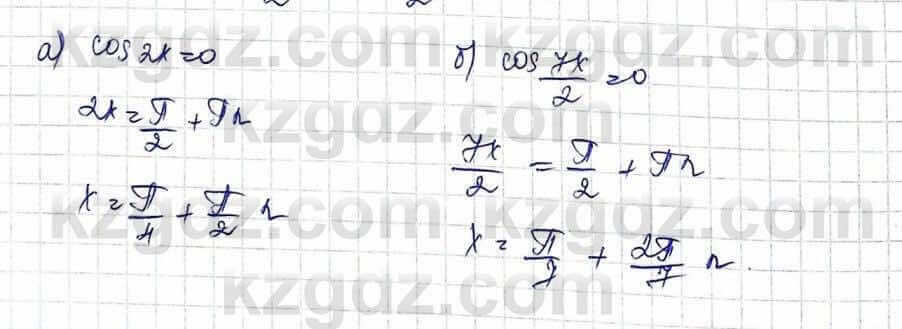 а) cos 2x = 0
2x = π/2 + πn
x = π/4 + π/2 n
б) cos 7x/2 = 0
7x/2 = π/2 + πn
x = π/7 + 2π/7 n.
kzgdz.com kzgdz.com
kzgdz.com kzgdz.com
kzgdz.com kzgdz.com
kzgdz.com